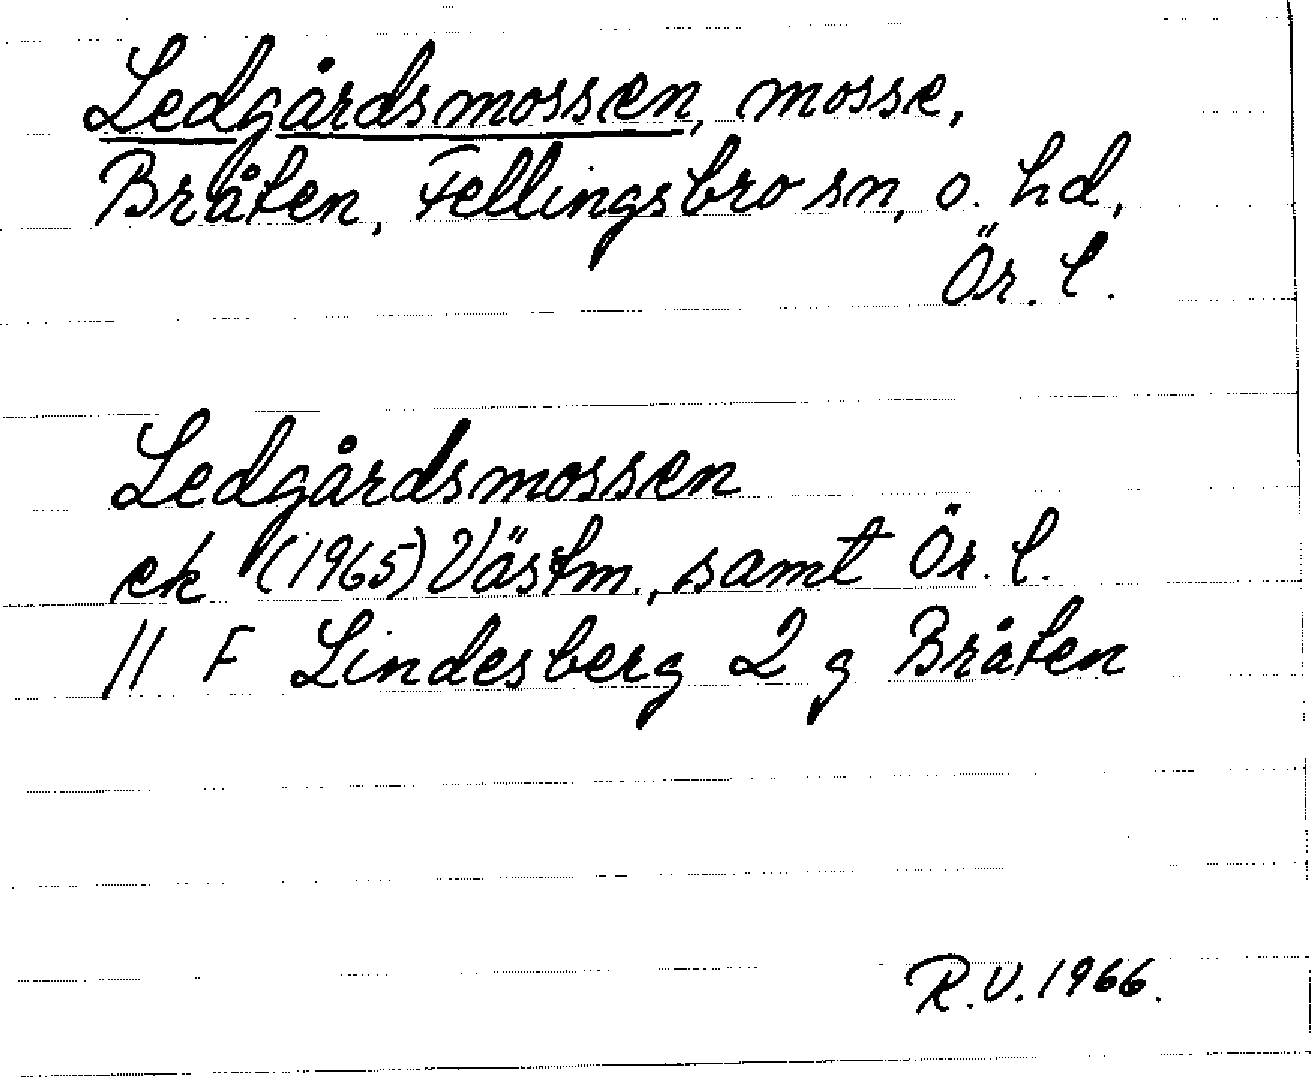 Ledgårdsmossen, mosse,
Bråten, Fellingsbro sn, o. hd,
Ör. l.
Ledgårdsmossen
ek (1965) Västm., samt Ör. l.
11 F Lindesberg 2 g Bråten
R.V. 1966.